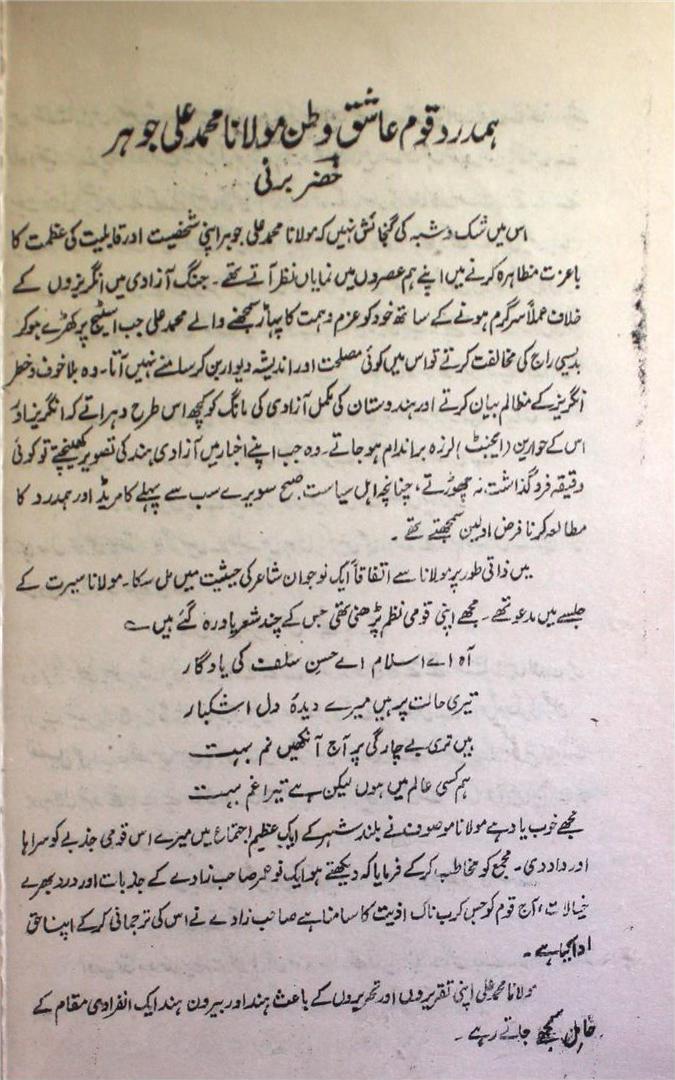 ہمدرد قوم عاشق وطن مولانا محمد علی جوہر
خضر برنی
اس میں شک و شبہ کی گنجائش نہیں کہ مولانا محمد علی جوہر اپنی شخصیت اور قابلیت کی عظمت کا
باعزت مظاہرہ کرنے میں اپنے ہم عصروں میں نمایاں نظر آتے تھے۔ جنگ آزادی میں انگریزوں کے
خلاف عملاً سرگرم ہونے کے ساتھ خود کو عزم و ہمت کا پہاڑ سمجھنے والے محمد علی جب اسٹیج پر کھڑے ہو کر
بدیسی راج کی مخالفت کرتے تو اس میں کوئی مصلحت اور اندیشہ دیوار بن کر سامنے نہیں آتا۔ وہ بلا خوف و خطر
انگریز کے مظالم بیان کرتے اور ہندوستان کی مکمل آزادی کی مانگ کو کچھ اس طرح دہراتے کہ انگریز اور
اس کے حوارین (ایجنٹ) لرزہ براندام ہو جاتے۔ وہ جب اپنے اخبار میں آزادی ہند کی تصویر کھینچتے تو کوئی
دقیقہ فرو گذاشت نہ چھوڑتے، چنانچہ اہل سیاست صبح سویرے سب سے پہلے کامریڈ اور ہمدرد کا
مطالعہ کرنا فرض اولین سمجھتے تھے۔
میں ذاتی طور پر مولانا سے اتفاقاً ایک نوجوان شاعر کی حیثیت میں مل سکا۔ مولانا سیرت کے
جلسے میں مدعو تھے۔ مجھے اپنی قومی نظم پڑھنی تھی جس کے چند شعر یاد رہ گئے ہیں ؎
آہ اے اسلام اے حسن سلف کی یادگار
تیری حالت پر ہیں میرے دیدۂ دل اشکبار
ہیں تری بے چارگی پر آج آنکھیں نم بہت
ہم کسی عالم میں ہوں لیکن ہے تیرا غم بہت
مجھے خوب یاد ہے مولانا موصوف نے بلند شہر کے ایک عظیم اجتماع میں میرے اس قومی جذبے کو سراہا
اور داد دی۔ مجمع کو مخاطب کر کے فرمایا کہ دیکھتے ہو ایک نو عمر صاحب زادے کے جذبات اور درد بھرے
خیالات، آج قوم کو جس کرب ناک اذیت کا سامنا ہے صاحب زادے نے اس کی ترجمانی کر کے اپنا حق
ادا کیا ہے۔
مولانا محمد علی اپنی تقریروں اور تحریروں کے باعث ہند اور بیرون ہند ایک انفرادی مقام کے
حامل سمجھے جاتے رہے۔